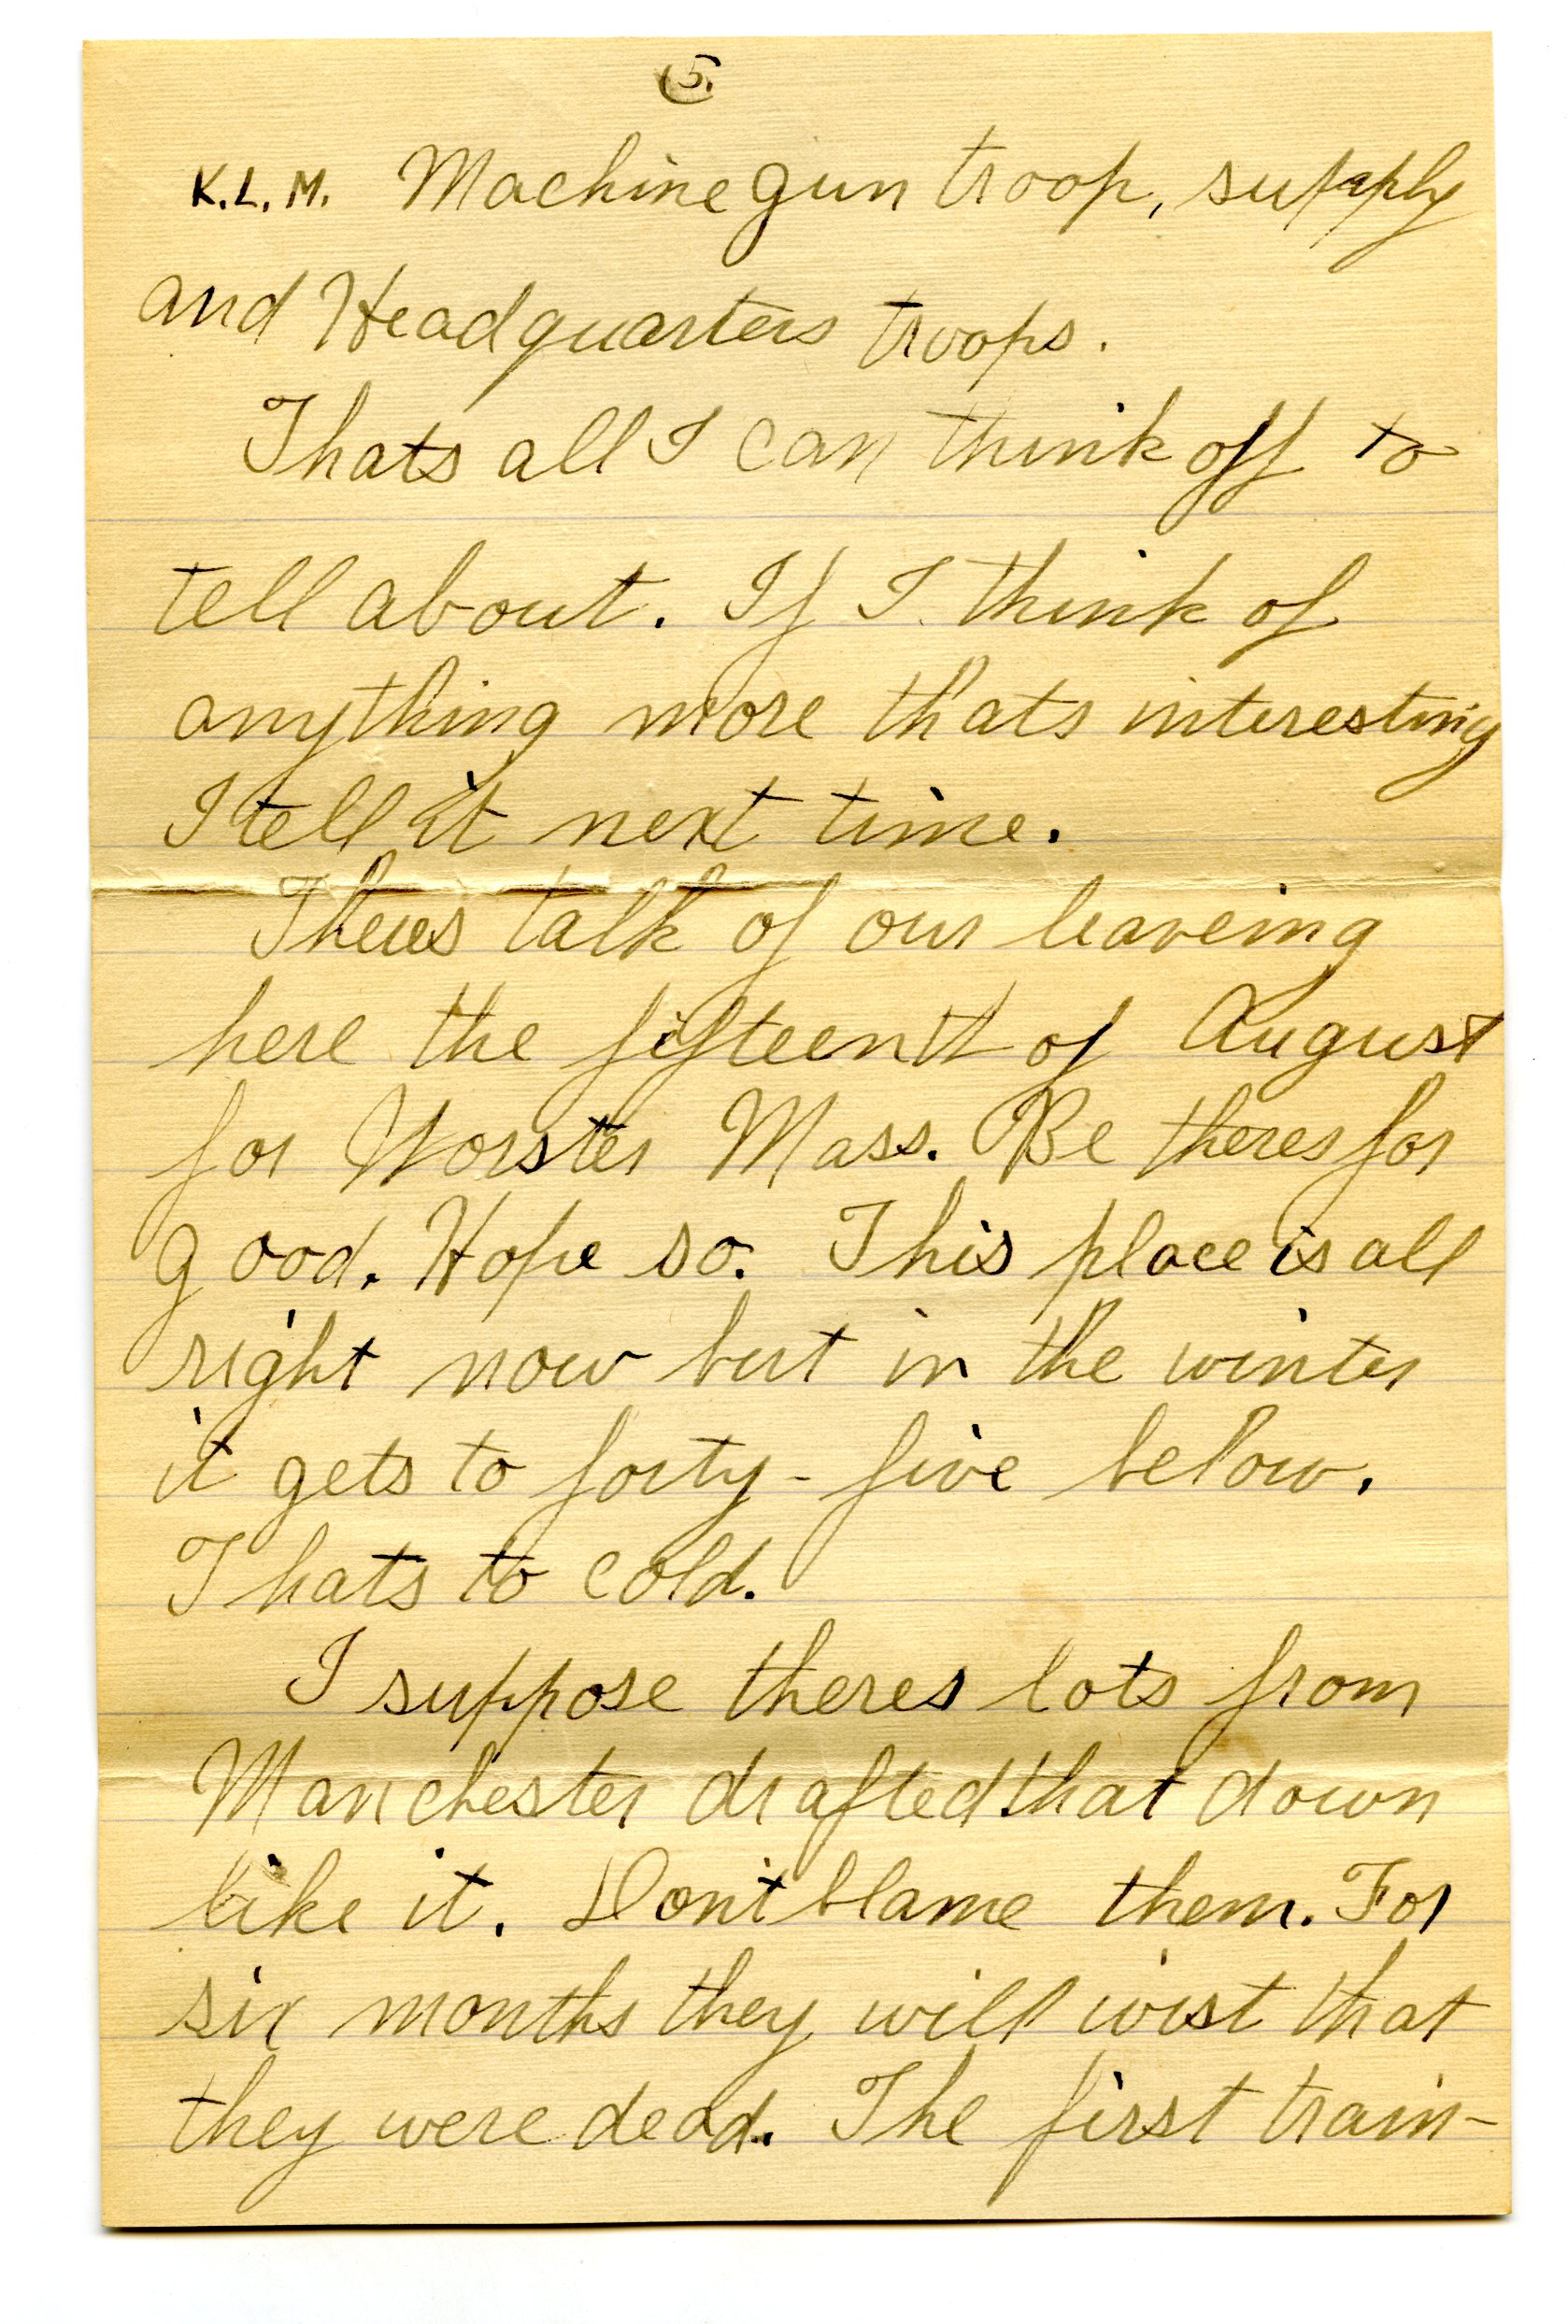 5.
K.L.M. Machine gun troop, supply
and Headquarters troops.
Thats all I can think off to
tell about. If I think of
anything more thats interesting
I tell it next time.
Theres talk of our leaveing
here the fifteenth of August
for Worster Mass. Be theres for
good. Hope so. This place is all
right now but in the winter
it gets to forty-five below.
Thats to cold.
I suppose theres lots from
Manchester drafted that down
like it. Dont blame them. For
six months they will wist that
they were dead. The first train-